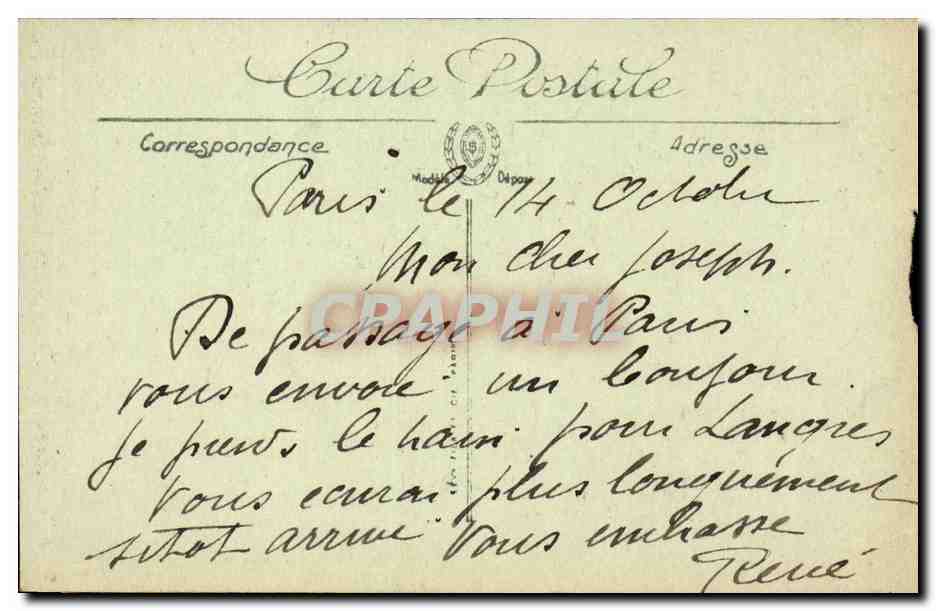 Carte Postale
Correspondance
Adresse
Modèle Déposé
Paris le 14 Octobre
Mon cher Joseph.
De passage à Paris
vous envoie un bonjour.
je prends le train pour Langres
Vous écrirai plus longuement
sitot arrivé Vous embrasse
René
CRAPHIL